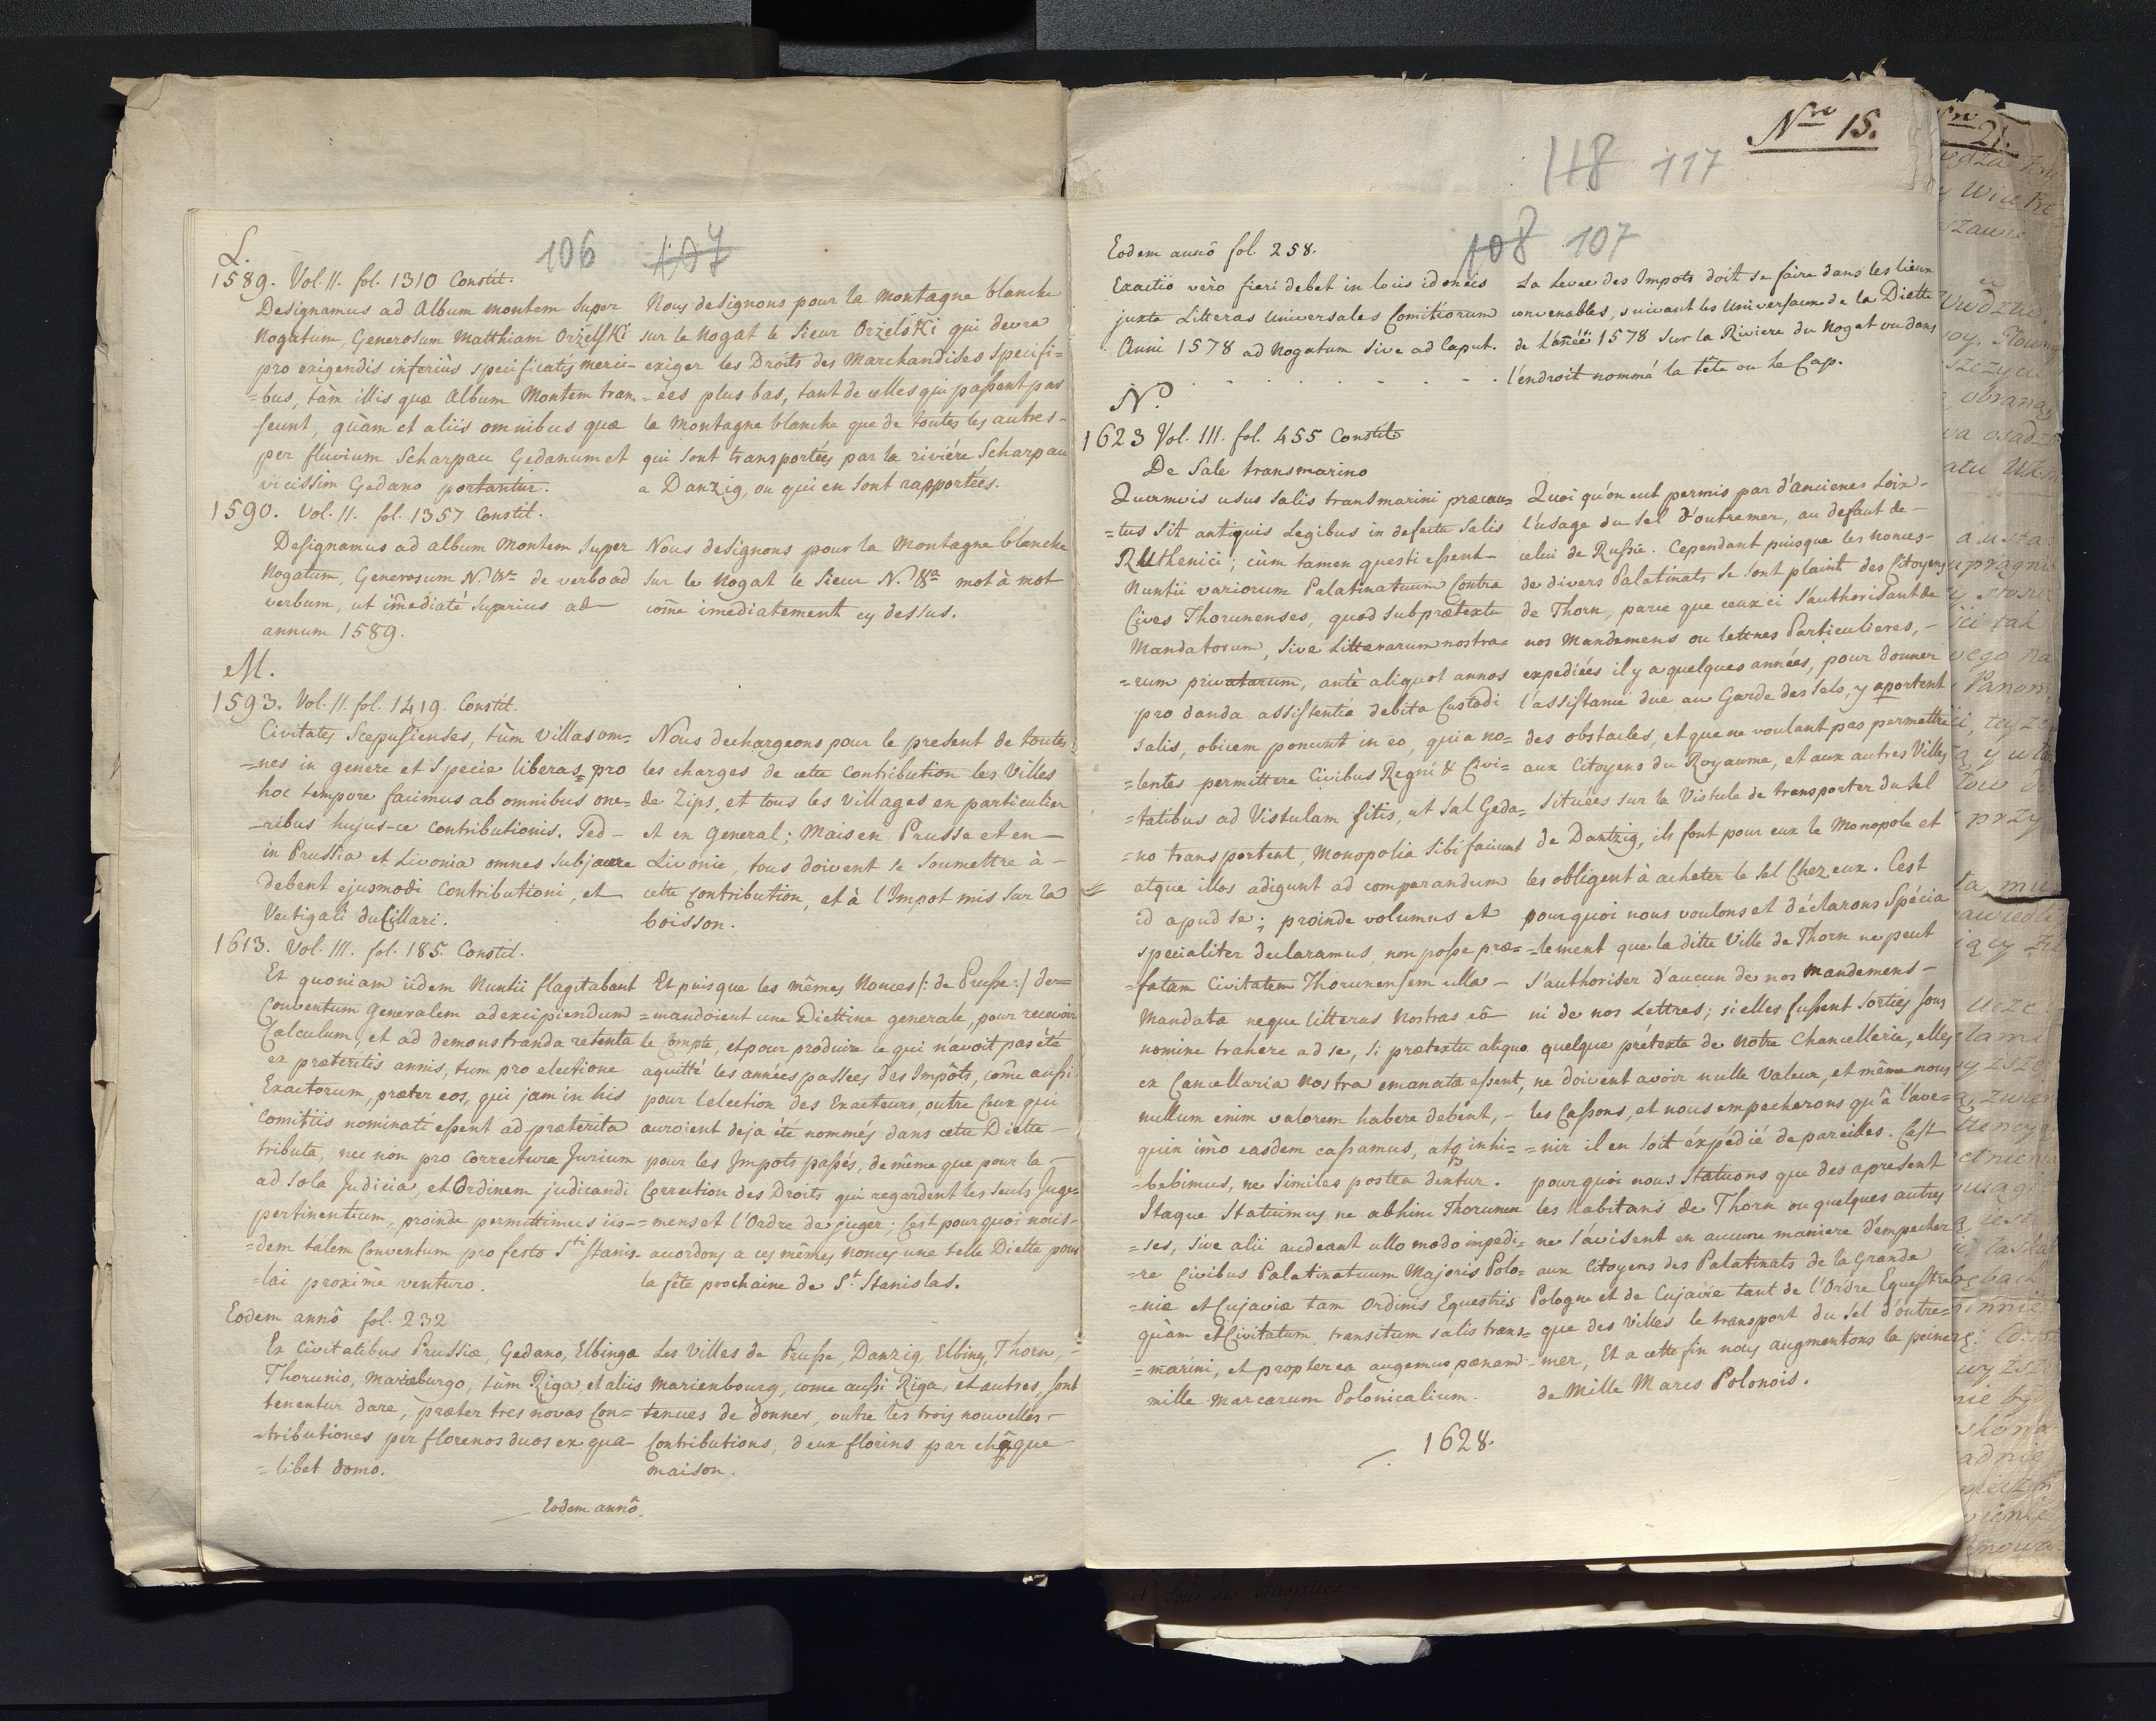 L.
106 107
1589. Vol. II. fol. 1310 Constit.
Designamus ad Album montem Super
Nogatum, Generosum Matthiam Orzelski
pro exigendis inferiùs specificatis merci-
=bus, tàm illis quæ Album Montem tran-
seunt, quàm et aliis omnibus quæ
per fluvium Scharpau Gedanum et
vicissim Gedano portantur.
Nous designons pour la Montagne blanche
sur le Nogat le Sieur Orzelski qui devra
exiger les Droits des Marchandises specifi=
=ées plus bas, tant de celles qui passent par
la Montagne blanche que de toutes les autres-
qui sont transportées par la riviére Scharpau
a Danzig, ou qui en sont rapportées.
1590. Vol. II. fol. 1357 Constit.
Designamus ad album Montem Super
Nogatum, Generosum N. de verbo ad
verbum, ut imediaté Superius ad
annum 1589.
Nous designons pour la Montagne blanche
sur le Nogat le Sieur N. mot à mot
come imediatement cy dessus.
M.
1593. Vol. II. fol. 1419. Constit.
Civitates Scepusienses, tùm villas om=
=nes in genere et Specie liberas pro
hoc tempore facimus ab omnibus one=
=ribus hujus-ce contributionis. Sed-
in Prussia et Livonia omnes subjacere
debent ejusmodi Contributioni, et
Vectigali ducillari.
Nous dechargeons pour le present de toutes
les charges de cette Contribution les Villes
de Zips, et tous les Villages en particulier
et en general; Mais en Prusse et en-
Livonie, tous doivent se Soumettre à-
cette Contribution, et à l'Impot mis sur la
boisson.
1613. Vol. III. fol. 185. Constit.
Et quoniam iidem Nuntii flagitabant
Conventum Generalem ad excipiendum
Calculum, et ad demonstranda retenta
ex præteritis annis, tum pro electione
Exactorum, præter eos, qui jam in his
Comitiis nominati essent ad præterita
tributa, nec non pro Correctura Jurium
ad sola Judicia, et Ordinem judicandi
pertinentium, proinde permittimus iis-
=dem talem Conventum pro festo Sti Stanis-
=lai proximè venturo.
Et puisque les mêmes Nonces /: de Prusse:/ de=
=mandoient une Diettine generale, pour recevoir
le Compte, et pour produire ce qui n'avoit pas été
aquitté les années passées des Impôts, come aussi
pour l'election des Exacteurs, outre Ceux qui
auroient deja été nommés dans cette Diette-
pour les Impots passés, de même que pour la-
Correction des Droits qui regardent les seuls Juge=
=mens et l'Ordre de juger; C'est pourquoi nous-
accordons a ces mêmes nonces une telle Diette pour
la fête prochaine de St. Stanislas.
Eodem annô fol. 232
Ex Civitatibus Prussiæ, Gedano, Elbinga
Thorunio, Mariæburgo, tùm Riga, et aliis
tenentur dare, præter tres novas Con=
=tributiones per florenos duos ex qua-
=libet domo.
Les Villes de Prusse, Danzig, Elbing, Thorn,-
Marienbourg, come aussi Riga, et autres, sont
tenues de donner, outre les trois nouvelles-
Contributions, deux florins par châque
maison.
Eodem annô
Nro 15.
118 117
108 107
Eodem annô fol. 258.
Exactio vèro fieri debet in locis idoneis
juxta Litteras Universales Comitiorum
Anni 1578 ad Nogatum sive ad Caput.
La Levée des Impots doit se faire dans les lieux
convenables, suivant les Universaux de la Diette
de l'année 1578 sur la Riviere du Nogat ou dans
l'endroit nommé la tête ou le Cap.
N.
1623 Vol. III. fol. 455 Constit.
De Sale transmarino
Quamvis usus salis transmarini præcau=
=tus sit antiquis Legibus in defectu Salis
Ruthenici; cùm tamen questi essent-
Nuntii variorum Palatinatuum Contra
Cives Thorunenses, quod sub prætextu
Mandatorum, sive Litterarum nostra=
=rum privatarum, antè aliquot annos
pro danda assistentia debita Custodi
salis, obicem ponunt in eo, quia no=
=lentes permittere Civibus Regni & Civi=
=tatibus ad Vistulam sitis, ut sal Geda=
=no transportent, Monopolia sibi faciunt
atque illos adigunt ad comparandum
id apud se; proinde volumus et
specialiter declaramus, non posse præ=
=fatam Civitatem Thorunensem ulla-
Mandata neque litteras Nostras eô
nomine trahere ad se, si prætextu aliquo
ex Cancellaria Nostra emanata essent,
nullum enim valorem habere debent,-
quin imò easdem cassamus, atq inhi=
=bebimus, ne similes postea dentur.
Itaque Statuimus ne abhinc Thorunen
=ses, sive alii audeant ullo modo impedi=
=re Civibus Palatinatuum Majoris Polo=
=niæ et Cujaviæ tam Ordinis Equestris
quàm et Civitatum transitum salis trans=
=marini, et propterea augemus pænam
mille Marcarum Polonicalium.
Quoi qu'on eut permis par d'ancienes Loix-
l'usage du sel d'outremer, au defaut de-
celui de Russie. Cependant puisque les nonces-
de divers Palatinats se sont plaint des Citoyens
de Thorn, parce que ceux ci s'authorisant de
nos Mandemens ou lettres Particulieres,-
expediées il y a quelques années, pour donner
l'assistance due au Garde des Sels, y aportent
des obstacles, et que ne voulant pas permettre
aux Citoyens du Royaume, et aux autres Villes
Situées sur la Vistule de transporter du Sel
de Dantzig, ils font pour eux le Monopole et
les obligent à acheter le sel Chez eux. C'est
pourquoi nous voulons et déclarons Spécia
=lement que la ditte Ville de Thorn ne peut
s'authoriser d'aucun de nos Mandemens-
ni de nos Lettres; si elles fussent sorties sous
quelque prétexte de Notre Chancellerie, elles
ne doivent avoir nulle Valeur, et même nous
les Cassons, et nous empecherons qu'à l'ave=
=nir il en soit éxpédié de pareilles. C'est
pourquoi nous Statuons que des apresent
les Habitans de Thorn ou quelques autres
ne s'avisent en aucune maniere d'empecher
aux Citoyens des Palatinats de la Grande
Pologne et de Cujavie tant de l'Ordre Equestre
que des Villes le transport du Sel d'outre=
=mer, Et a cette fin nous augmentons la peine
de Mille Marcs Polonois.
1628.